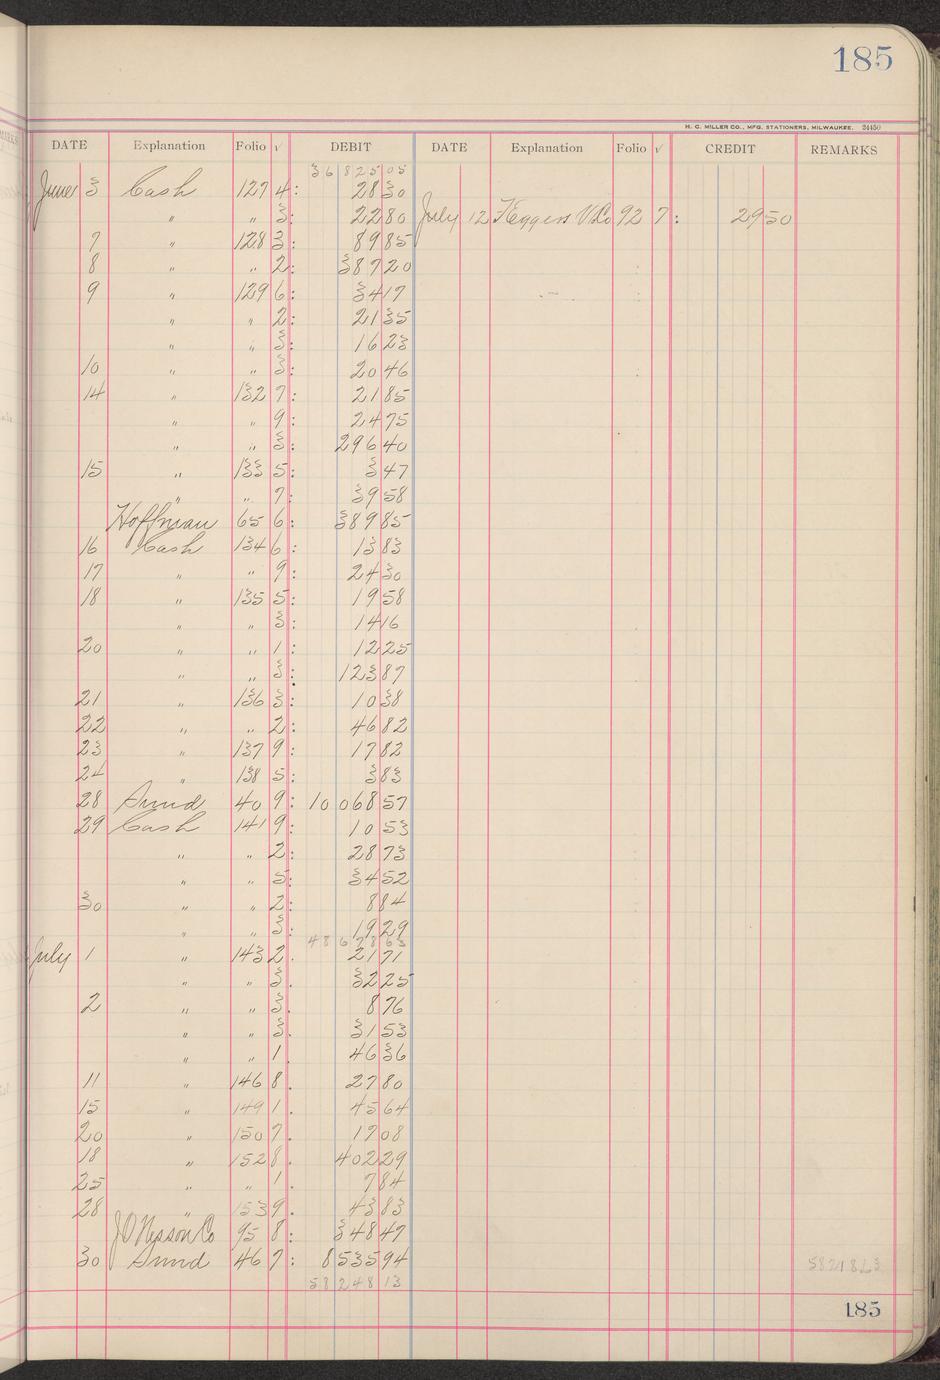 185
H. C. MILLER CO., MFG. STATIONERS, MILWAUKEE. 24450
DATE Explanation Folio √ DEBIT DATE Explanation Folio √ CREDIT REMARKS
36 825 05
June 3 Cash 127 4: 28 30
" " 3: 22 80 July 12 92 7: 29 50
7 " 128 3: 89 85
8 " " 2: 387 20
9 " 129 6: 34 17
" " 2: 21 35
" " 3: 16 23
10 " " 3: 20 46
14 " 132 7: 21 85
" " 9: 24 75
" " 3: 296 40
15 " 133 5: 3 47
" " 7: 39 58
Hoffman 65 6: 389 85
16 Cash 134 6: 13 83
17 " " 9: 24 30
18 " 135 5: 19 58
" " 3: 14 16
20 " " 1: 12 25
" " 3: 123 87
21 " 136 3: 10 38
22 " " 2: 46 82
23 " 137 9: 17 82
24 " 138 5: 3 83
28 Sund 40 9: 10 068 57
29 Cash 141 9: 10 53
" " 2: 28 73
" " 5: 34 52
30 " " 2: 8 84
" " 3: 19 29
48 678 63
July 1 " 143 2. 21 71
" " 3. 32 25
2 " " 3. 8 76
" " 3. 31 53
" " 1. 46 36
11 " 146 8. 27 80
15 149 1. 45 64
20 " 150 7. 17 08
18 " 152 8. 402 29
25 " " 1. 7 84
28 " 153 9. 43 83
Co 95 8: 348 47
30 Sund 46 7: 8 535 94
58 248 13
58218 63
185